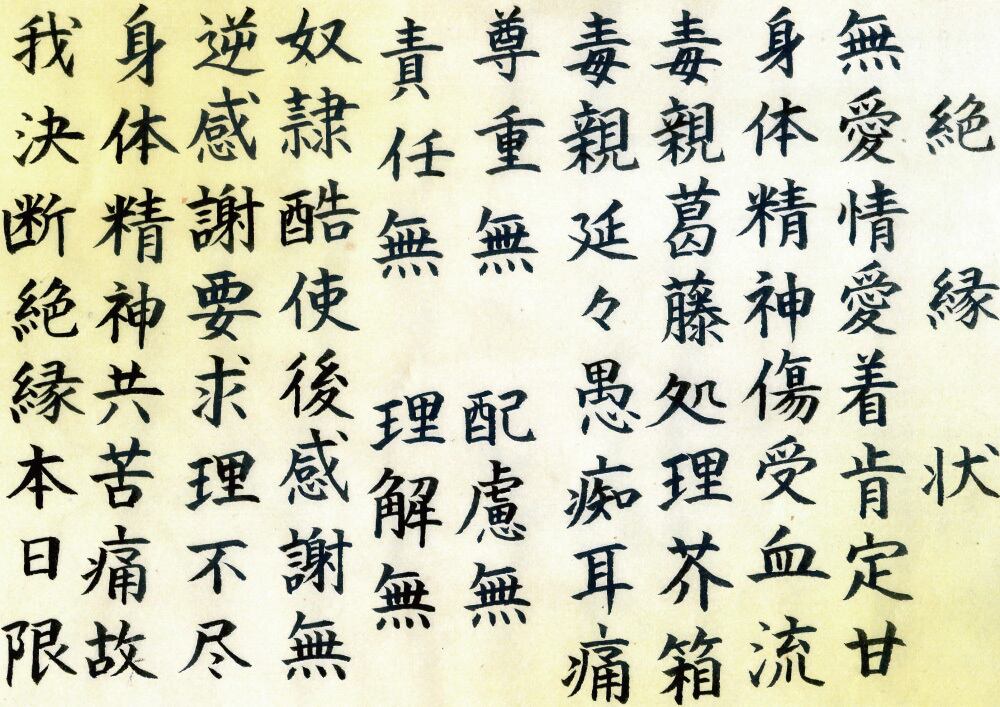 絶縁状
無愛情愛着肯定甘
身体精神傷受血流
毒親葛藤処理芥箱
毒親延々愚痴耳痛
尊重無 配慮無
責任無 理解無
奴隷酷使後感謝無
逆感謝要求理不尽
身体精神共苦痛故
我決断絶縁本日限